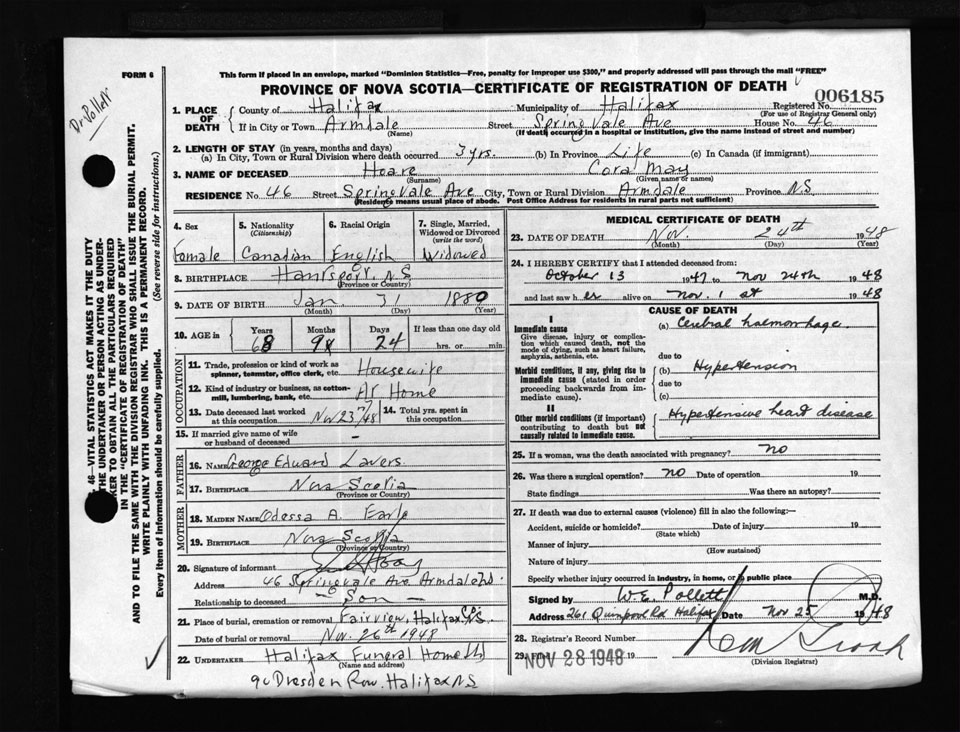 FORM 6
This form if placed in an envelope, marked "Dominion Statistics—Free, penalty for improper use $300," and properly addressed will pass through the mail "FREE"
PROVINCE OF NOVA SCOTIA—CERTIFICATE OF REGISTRATION OF DEATH
Dr. Pollett
006185
1. PLACE OF DEATH County of Halifax Municipality of Halifax Registered No.
(For use of Registrar General only)
If in City or Town Armdale Street Springvale Ave House No. 46
(Name) (If death occurred in a hospital or institution, give the name instead of street and number)
2. LENGTH OF STAY (in years, months and days)
(a) In City, Town or Rural Division where death occurred 3 yrs. (b) In Province Life (c) In Canada (if immigrant)
3. NAME OF DECEASED Hoare Cora May
(Surname) (Given name or names)
RESIDENCE No. 46 Street Springvale Ave City, Town or Rural Division Armdale Province N.S.
(Residence means usual place of abode. Post Office Address for residents in rural parts not sufficient)
46—VITAL STATISTICS ACT MAKES IT THE DUTY
THE UNDERTAKER OR PERSON ACTING AS UNDER-
KER TO OBTAIN ALL THE PARTICULARS REQUIRED
IN THE "CERTIFICATE OF REGISTRATION OF DEATH"
AND TO FILE THE SAME WITH THE DIVISION REGISTRAR WHO SHALL ISSUE THE BURIAL PERMIT.
WRITE PLAINLY WITH UNFADING INK. THIS IS A PERMANENT RECORD.
Every item of information should be carefully supplied. (See reverse side for instructions.)
4. Sex 5. Nationality (Citizenship) 6. Racial Origin 7. Single, Married, Widowed or Divorced (write the word)
Female Canadian English Widowed
8. BIRTHPLACE Hantsport, N.S
(Province or Country)
9. DATE OF BIRTH Jan 31 1880
(Month) (Day) (Year)
10. AGE in Years Months Days If less than one day old
68 9 24 hrs. or min.
OCCUPATION
11. Trade, profession or kind of work as spinner, teamster, office clerk, etc. Housewife
12. Kind of industry or business, as cotton-mill, lumbering, bank, etc. At Home
13. Date deceased last worked at this occupation Nov 23/48 14. Total yrs. spent in this occupation
15. If married give name of wife or husband of deceased —
FATHER
16. NAME George Edward Lavers
17. BIRTHPLACE Nova Scotia
(Province or Country)
MOTHER
18. MAIDEN NAME Odessa A. Earle
19. BIRTHPLACE Nova Scotia
(Province or Country)
20. Signature of informant
Address 46 Springvale Ave Armdale N.S.
Relationship to deceased — Son —
21. Place of burial, cremation or removal Fairview, Halifax Co. N.S.
Date of burial or removal Nov. 26th 1948
22. UNDERTAKER Halifax Funeral Home Ltd
(Name and address)
90 Dresden Row. Halifax N.S
MEDICAL CERTIFICATE OF DEATH
23. DATE OF DEATH Nov. 24th 1948
(Month) (Day) (Year)
24. I HEREBY CERTIFY that I attended deceased from:
October 13 1947 to Nov 24th 1948
and last saw her alive on Nov. 1st 1948
CAUSE OF DEATH
I
Immediate cause (a) Cerebral haemorrhage
Give disease, injury or complication which caused death, not the mode of dying, such as heart failure, asphyxia, asthenia, etc.
due to
Morbid conditions, if any, giving rise to immediate cause (stated in order proceeding backwards from immediate cause). (b) Hypertension
due to
(c)
II
Other morbid conditions (if important) contributing to death but not causally related to immediate cause. Hypertensive heart disease
25. If a woman, was the death associated with pregnancy? no
26. Was there a surgical operation? no Date of operation 19
State findings Was there an autopsy?
27. If death was due to external causes (violence) fill in also the following:—
Accident, suicide or homicide? Date of injury 19
(State which)
Manner of injury
(How sustained)
Nature of injury
Specify whether injury occurred in industry, in home, or in public place
Signed by W.E. Pollett M.D.
Address 261 Quinpool Rd Halifax Date Nov 25 1948
28. Registrar's Record Number
29. Filed NOV 28 1948 19
(Division Registrar)